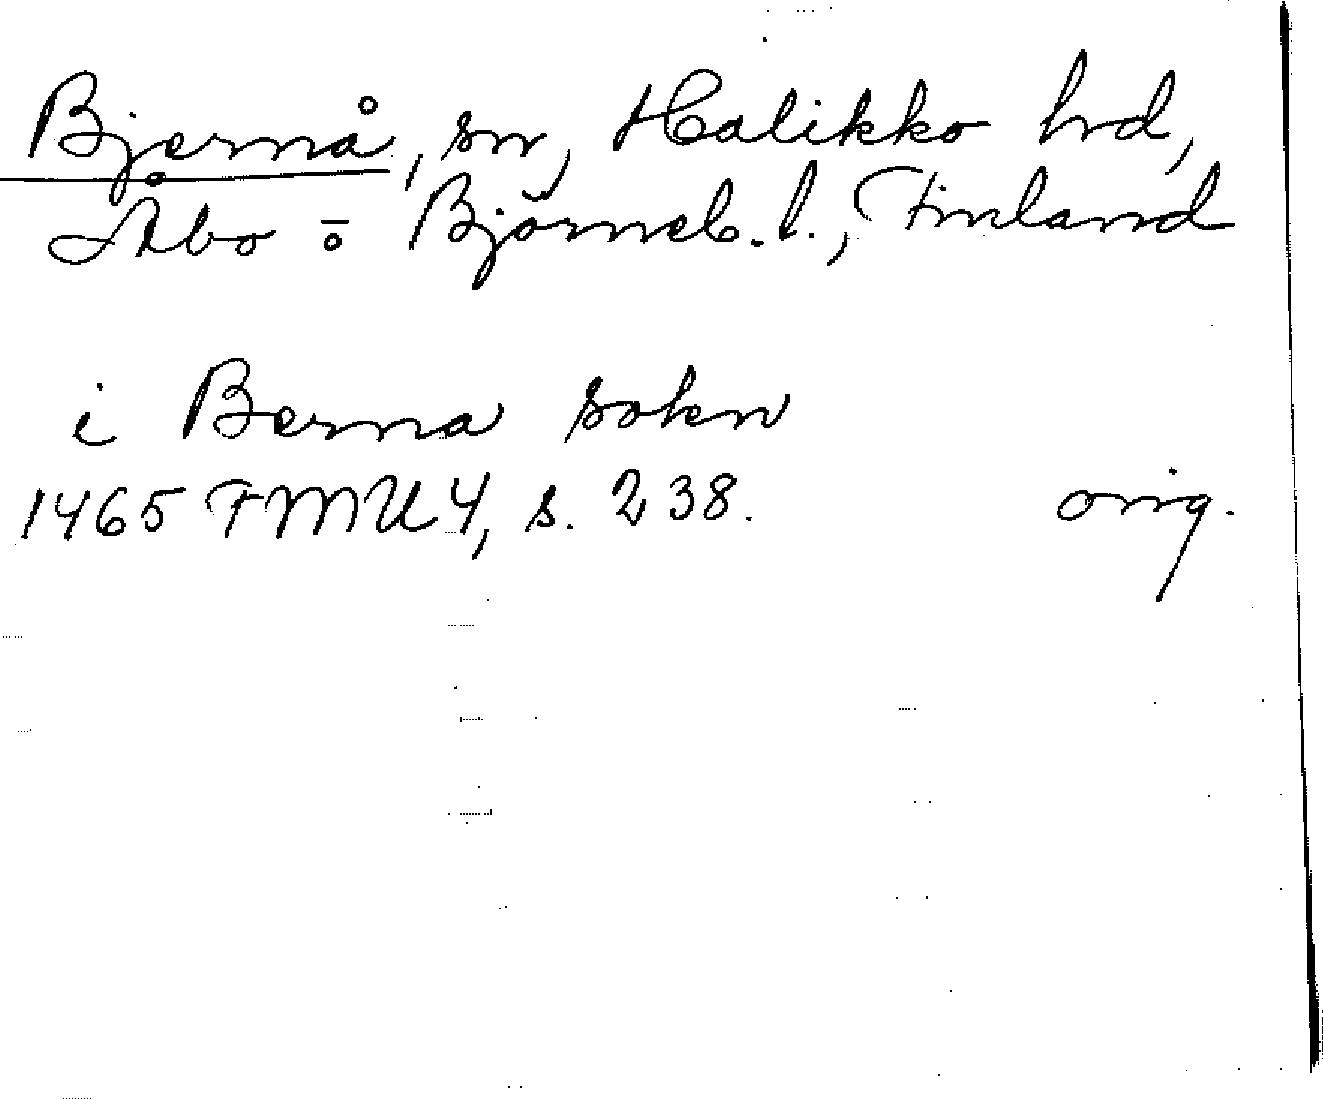 Bjernå, sn, Halikko hd,
Åbo o Björneb. l., Finland
i Berna sokn
1465 FMU 4, s. 238. orig.